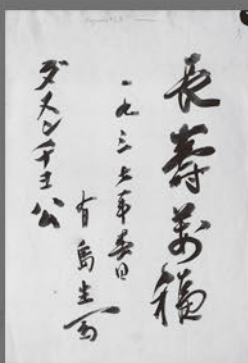 長寿萬福
一九三七年春日
有島生馬
ダヌンチヨ公